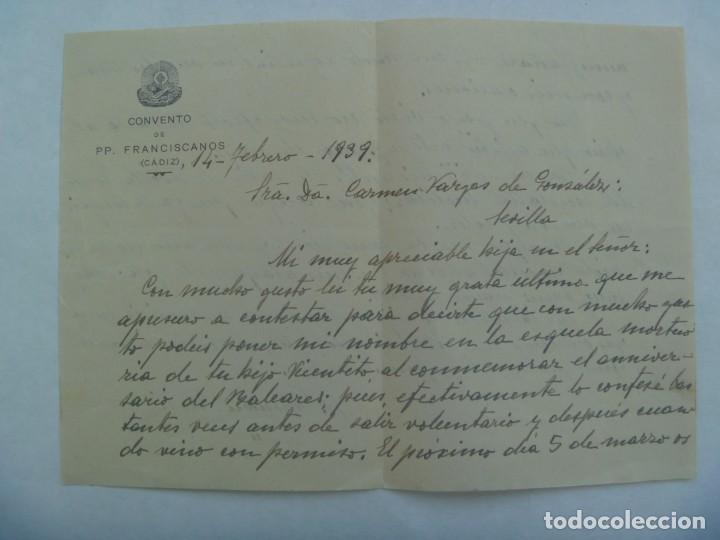 CONVENTO
DE
PP. FRANCISCANOS
(CÁDIZ), 14 - Febrero - 1939:
Sra. Dã. Carmen Vargas de González:
Sevilla
Mi muy apreciable hija en el Señor:
Con mucho gusto leí tu muy grata última que me
apresuro a contestar para decirte que con mucho gus
to podeis poner mi nombre en la esquela mortuo
ria de tu hijo Vicentito al conmemorar el anniver-
sario del Baleares; pues, efectivamente lo confesé bas
tantes veces antes de salir voluntario y despues cuan
do vino con permiso. El próximo día 5 de marzo os
todocoleccion.net